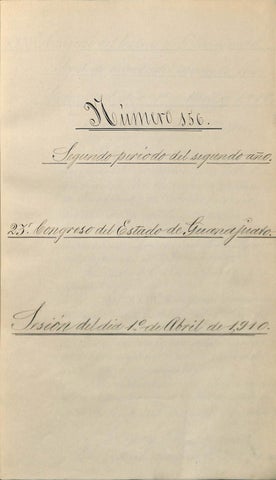 Número 156.
Segundo periodo del segundo año.
23º Congreso del Estado de Guanajuato.
Sesión del dia 1º de Abril de 1,910.